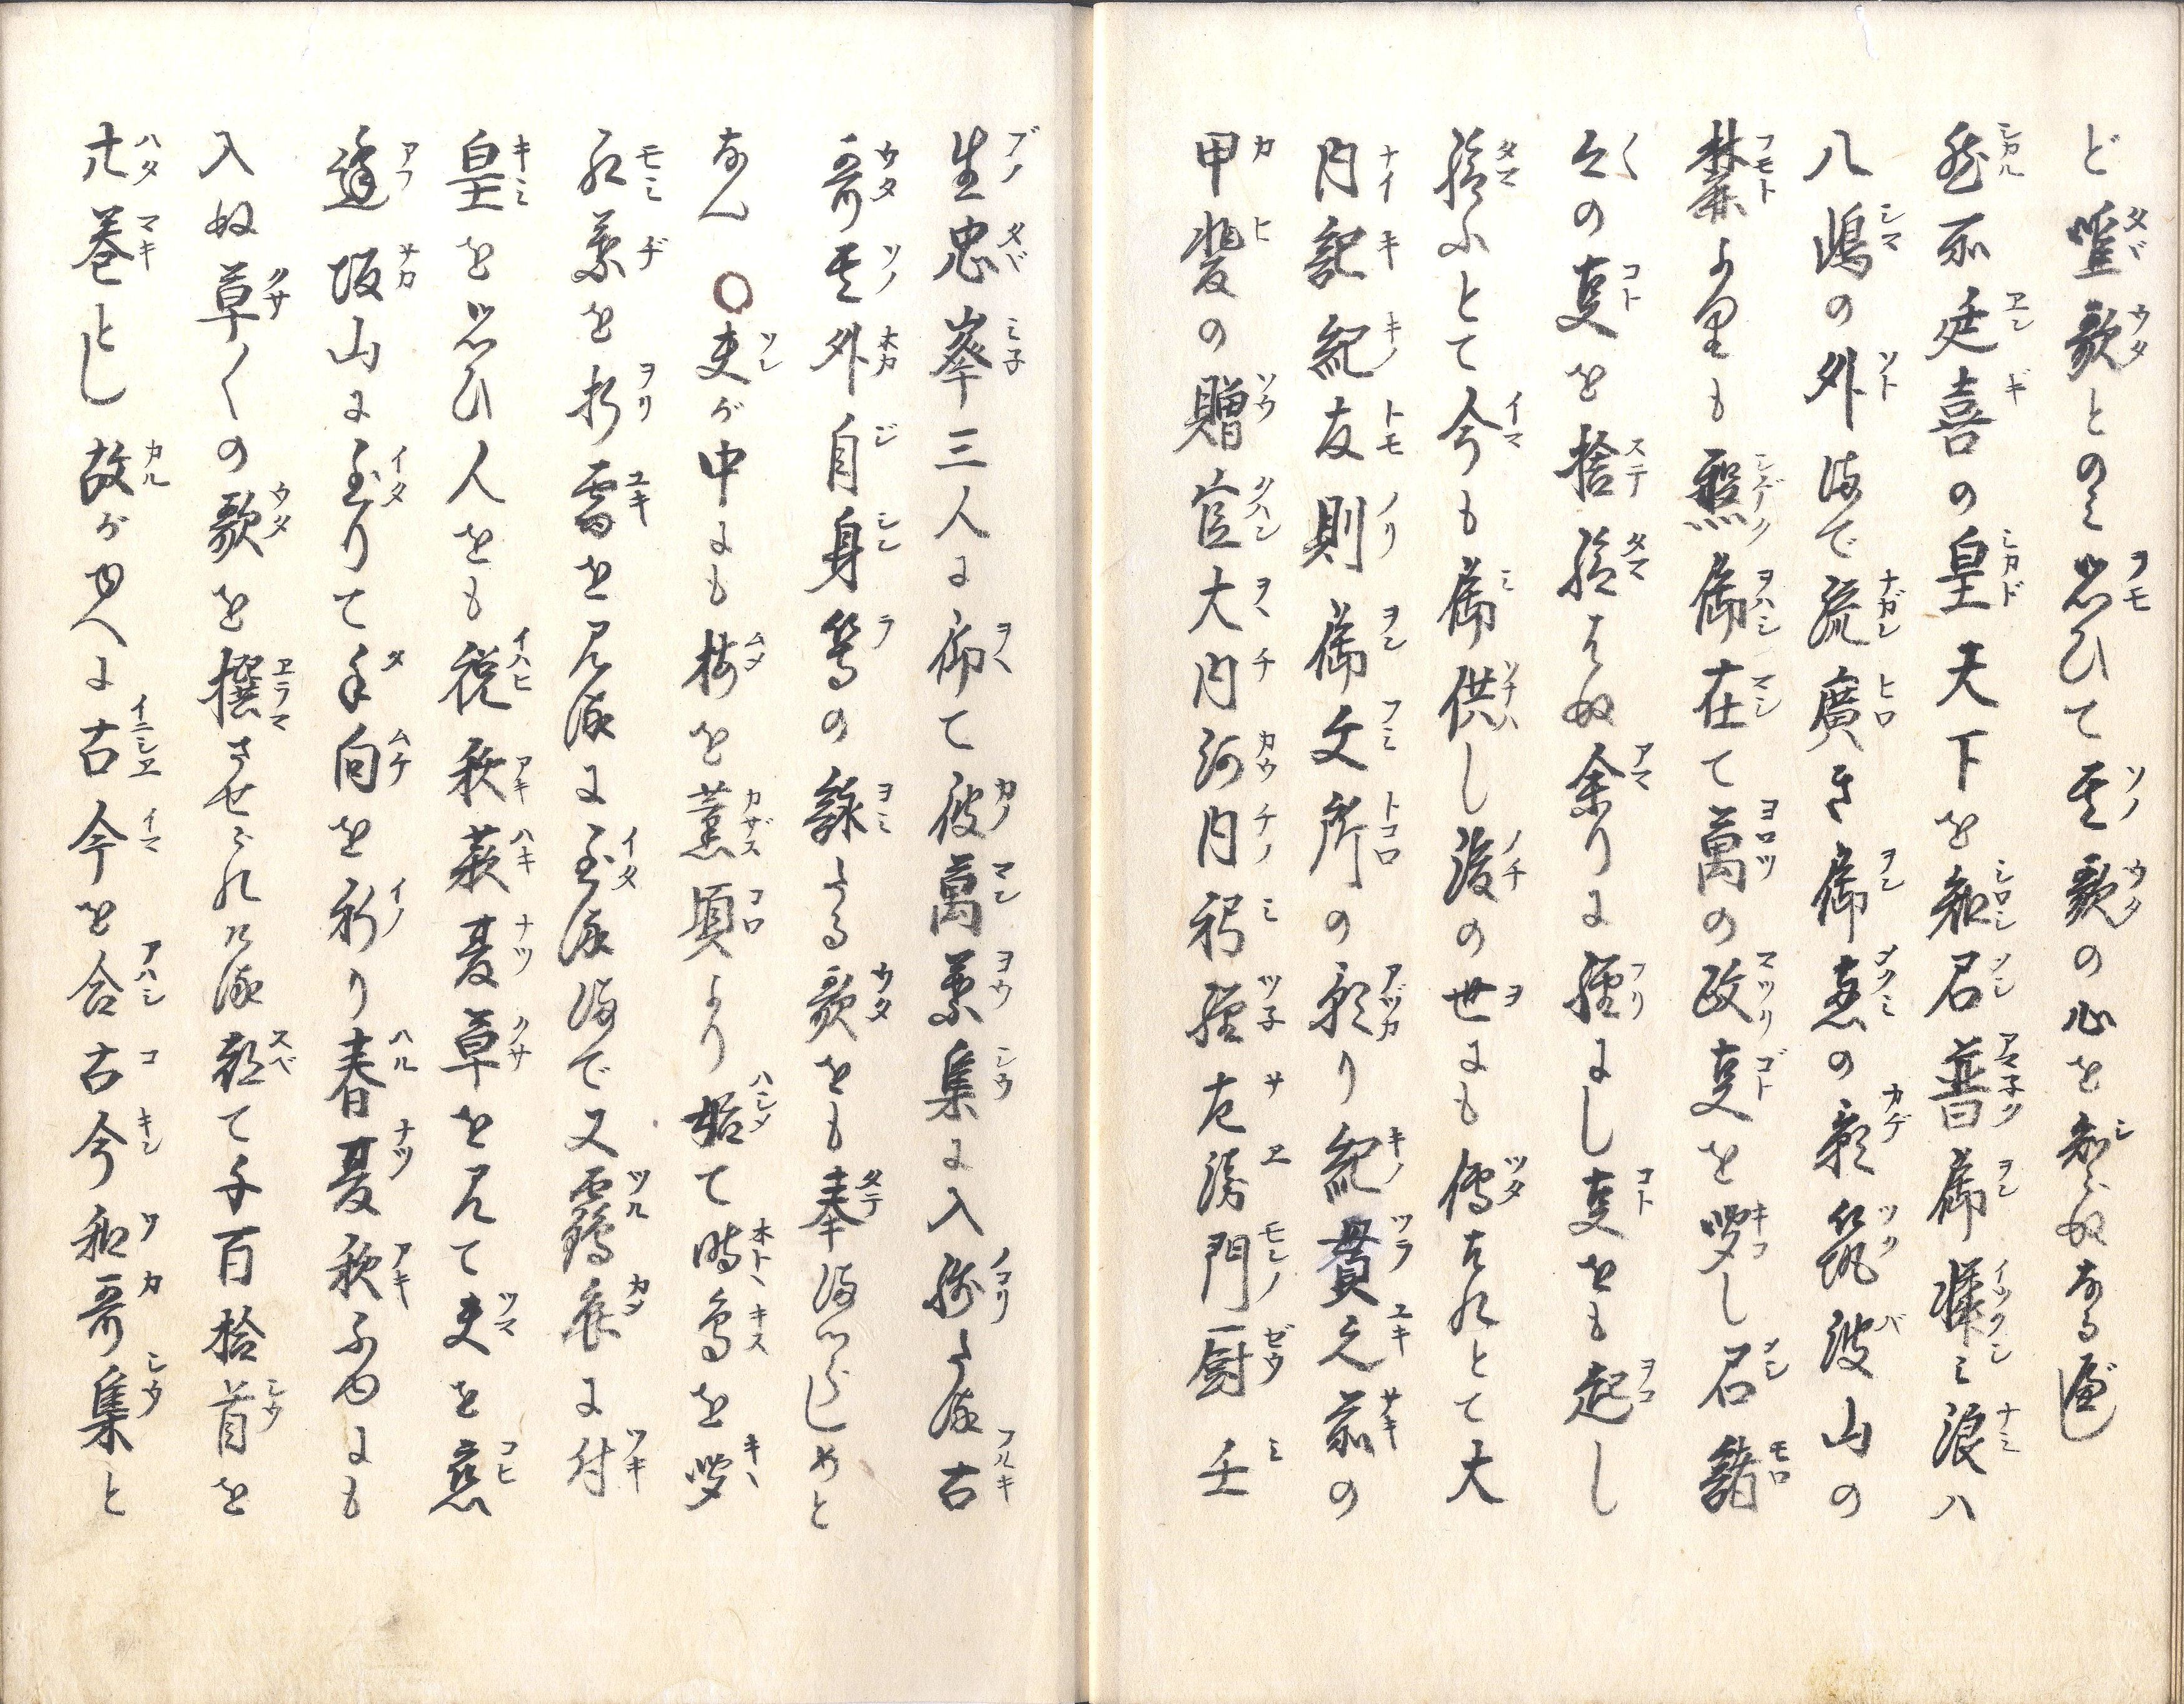 ど唯歌とのミ思ひて其歌の心を知らぬなるべし
然而延喜の皇天下を知召普御慈ミ浪ハ
八嶋の外まで流廣き御恵の影筑波山の
麓よりも繁御在て萬の政事を聞し召諸
〻の事を捨給はぬ余りに經にし事をも起し
給ふとて今も御供し後の世にも傳はれとて大
内記紀友則御文所の預り紀貫之前の
甲斐の贈官大内河内躬經左衛門厨壬
生忠峯三人に命て彼萬葉集に入殘たる古
哥其外自身等の詠たる歌をも奉まつらしめと
なん ○夫が中にも梅を薫頃より始て時鳥を聞
紅葉を折雪を見るに至るまで又靏亀に付
皇を思ひ人をも祝秋萩夏草を見て夫を恋
逢坂山に至りて手向を祈り春夏秋ふゆにも
入ぬ草〳〵の歌を撰させられける都て千百拾首を
廿巻とし故がゆへに古今を合古今和哥集と